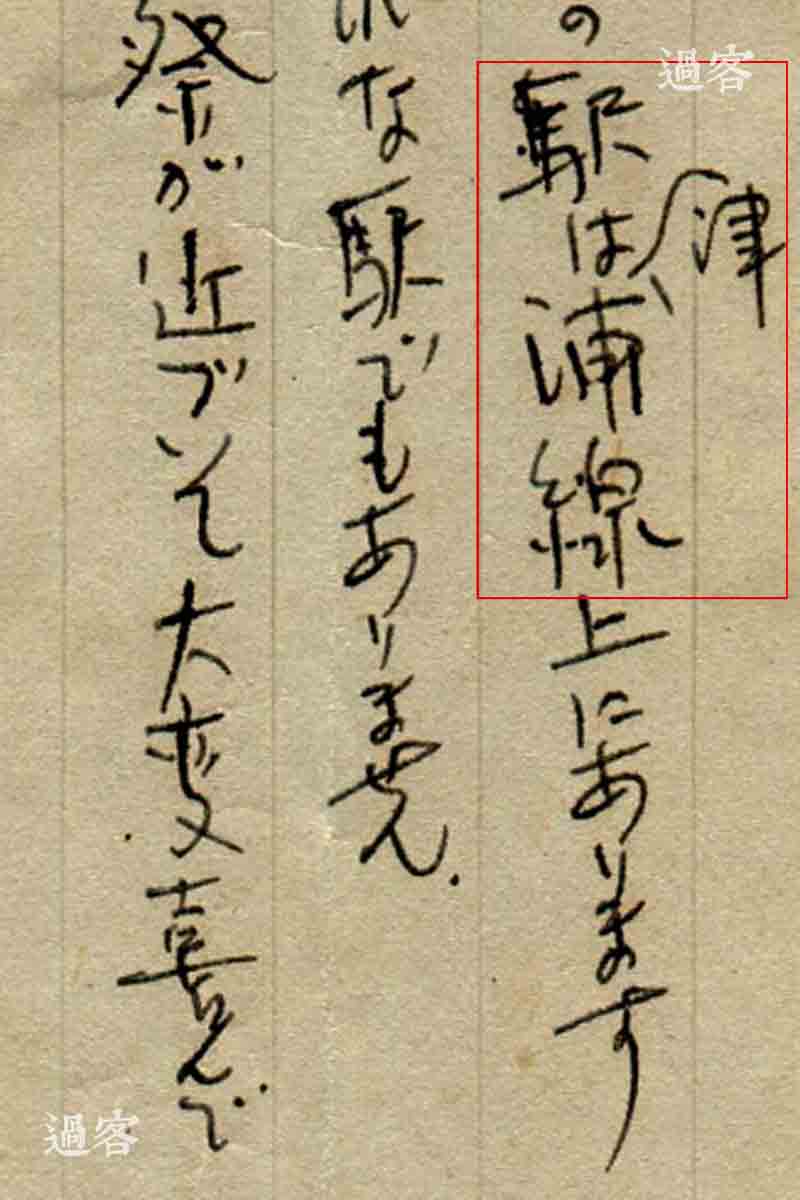 の駅は津浦線上にあります
れな駅でもありません.
祭が近づいて大変喜んで
過客
過客